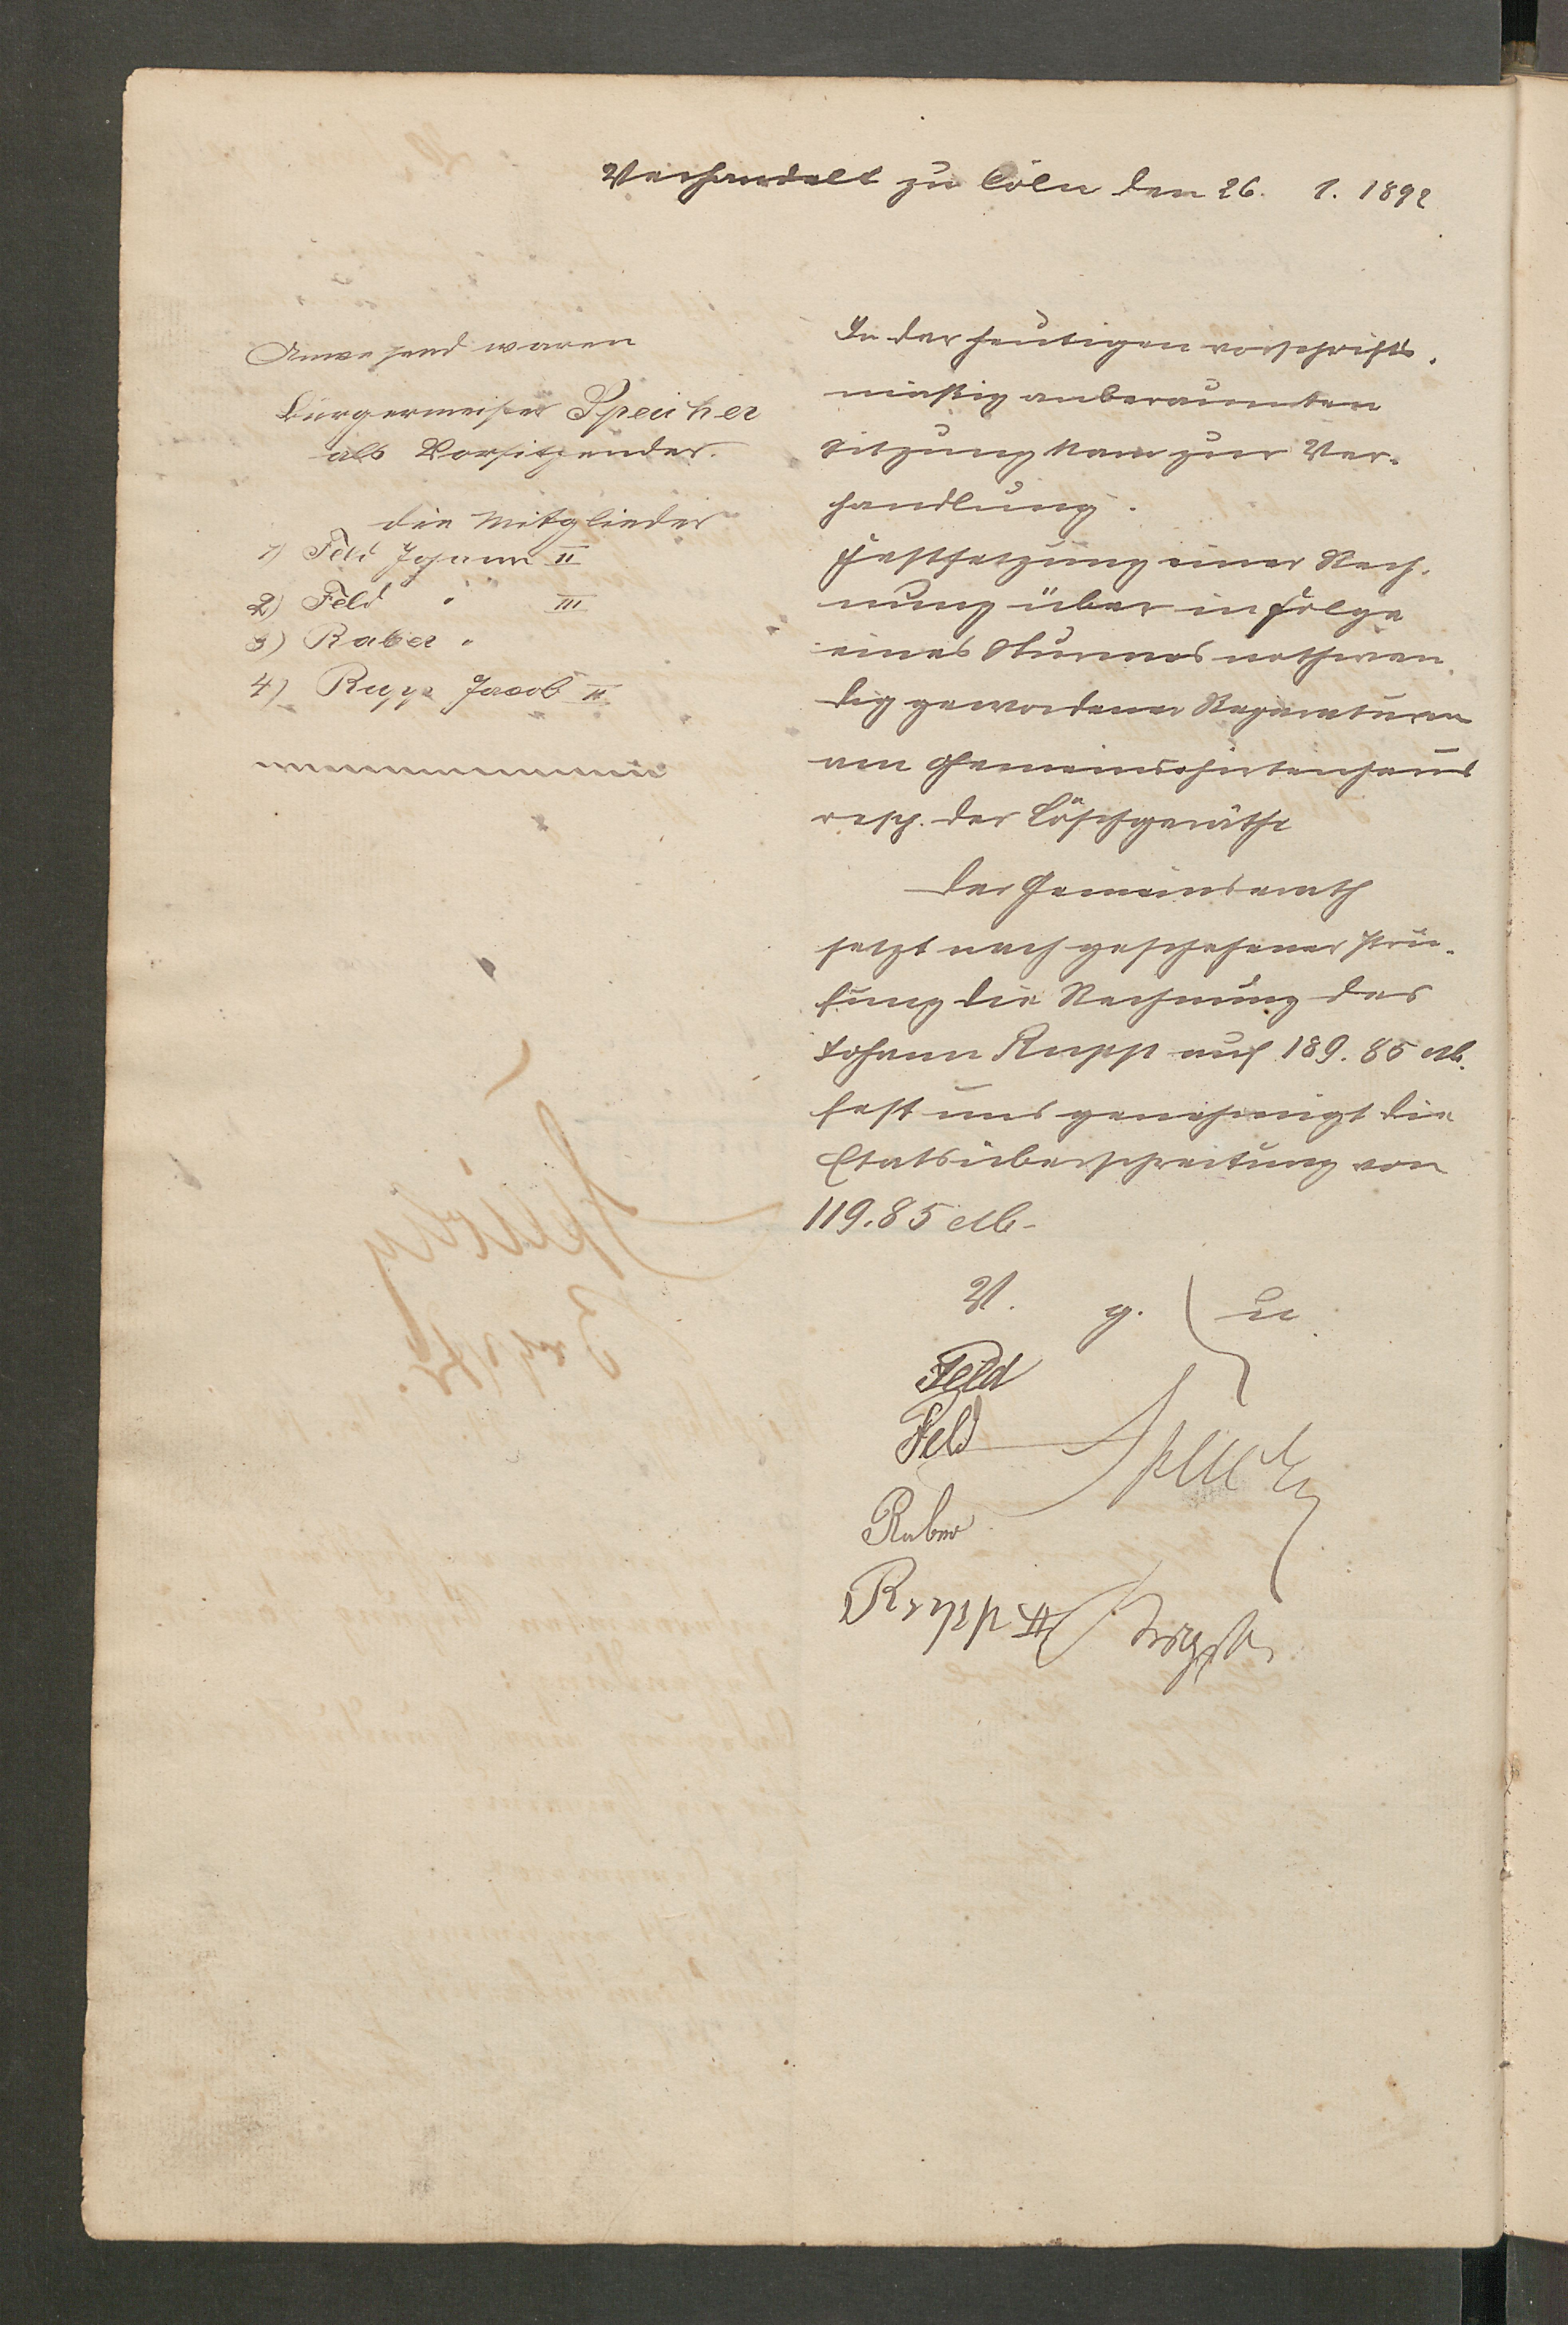 Verhandelt zu Cöln den 26. 1. 1892
Anwesend waren
Bürgermeister Speicher
als Vorsitzender.
die Mitglieder
1) Feld Johann II
2) Feld " III
3) Raber "
4) Rupp Jacob II
In der heutigen vorschrifts-
mäßig anberaumten
Sitzung kam zur Ver-
handlung.
Festsetzung einer Rech-
nung über in Folge
eines Sturmes nothwen-
dig gewordener Reparaturen
am Gemeindehirtenhaus
resp. der Löschgeräthe
Der Gemeinderath
setzt nach geschehener Prü-
fung die Rechnung des
Johann Rupp auf 189.85 M.
fest und genehmigt die
Etatsüberschreitung von
119.85 M.
V. g. u.
Feld
Feld
Speicher
Raber
Rupp II
Brgstr